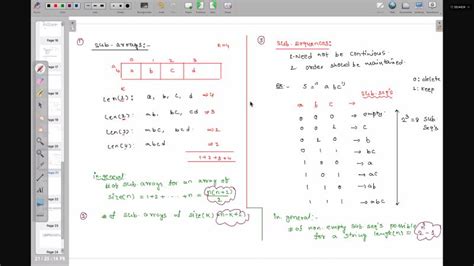 ① sub-arrays:-
n=4
0 1 2 3
a b c d
len(1): a, b, c, d → 4
len(2): ab, bc, cd → 3
len(3): abc, bcd → 2
len(4): abcd → 1
1+2+3+4
in general
# of sub arrays for an array
of size(n) = 1+2+ ... +n = n(n+1)/2
# of sub arrays of size(k) = n-k+1
② sub sequences:
1. Need not be continuous
2. order should be maintained
ex:- s = "abc"
0: delete
1: keep
a b c → sub-seq's
0 0 0 → empty
0 0 1 → c
0 1 0 → b
0 1 1 → bc
1 0 0 → a
1 0 1 → ac
1 1 0 → ab
1 1 1 → abc
2³ = 8 sub seq's
in general:-
# of non empty sub seq's possible
for a string length(n) = 2ⁿ-1